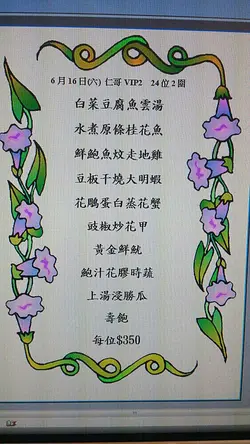 6月16日(六) 仁哥 VIP2 24位2圍
白菜豆腐魚雲湯
水煮原條桂花魚
鮮鮑魚炆走地雞
豆板干燒大明蝦
花鵰蛋白蒸花蟹
豉椒炒花甲
黃金鮮魷
鮑汁花膠時蔬
上湯浸勝瓜
壽飽
每位$350